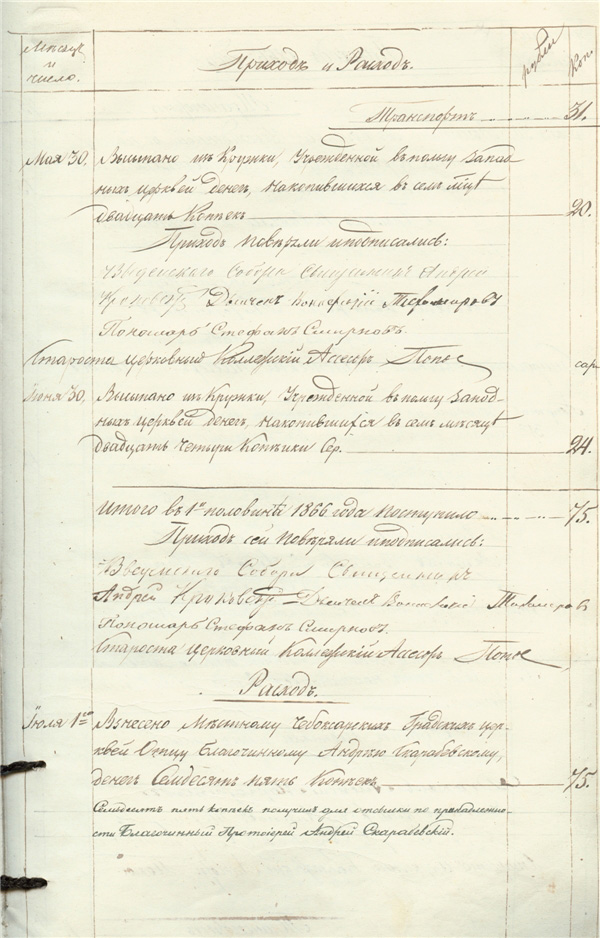 Мѣсяцъ и число.
Приходъ и Расходъ.
рубли
Коп.
Транспортъ 31.
Мая 30. Высыпано изъ Кружки, Учрежденной въ пользу запад-
ныхъ церквей денегъ, накопившихся въ семъ мѣсяцѣ
двадцать Копѣекъ 20.
Приходъ повѣряли и подписались:
Собора Священникъ Андрей
Дьячекъ
Пономарь Стефанъ Смирновъ.
Староста церковный Коллежскій Ассесоръ Попов
сер
Іюня 30. Высыпано изъ Кружки, Учрежденной въ пользу запад-
ныхъ церквей денегъ, накопившихся въ семъ мѣсяцѣ
двадцать четыре Копѣйки Сер. 24.
Итого въ 1й половинѣ 1866 года поступило 75.
Приходъ сей повѣряли и подписались:
Собора Священникъ
Андрей
Пономарь Стефанъ Смирновъ.
Староста Церковный Коллежскій Ассесоръ Попов
Расходъ.
Іюля 1го Взнесено Мѣстному Чебоксарскихъ Градскихъ цер-
квей Отцу Благочинному Андрею Скарабевскому,
денегъ Семдесятъ пять Копѣекъ 75.
Семьдесятъ пять копѣекъ получилъ для отсылки по принадлежно-
сти Благочинный Протоіерей Андрей Скарабевскій.